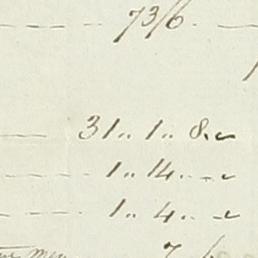 73/6
31.. 1.. 8.
1.. 14..
1.. 4..